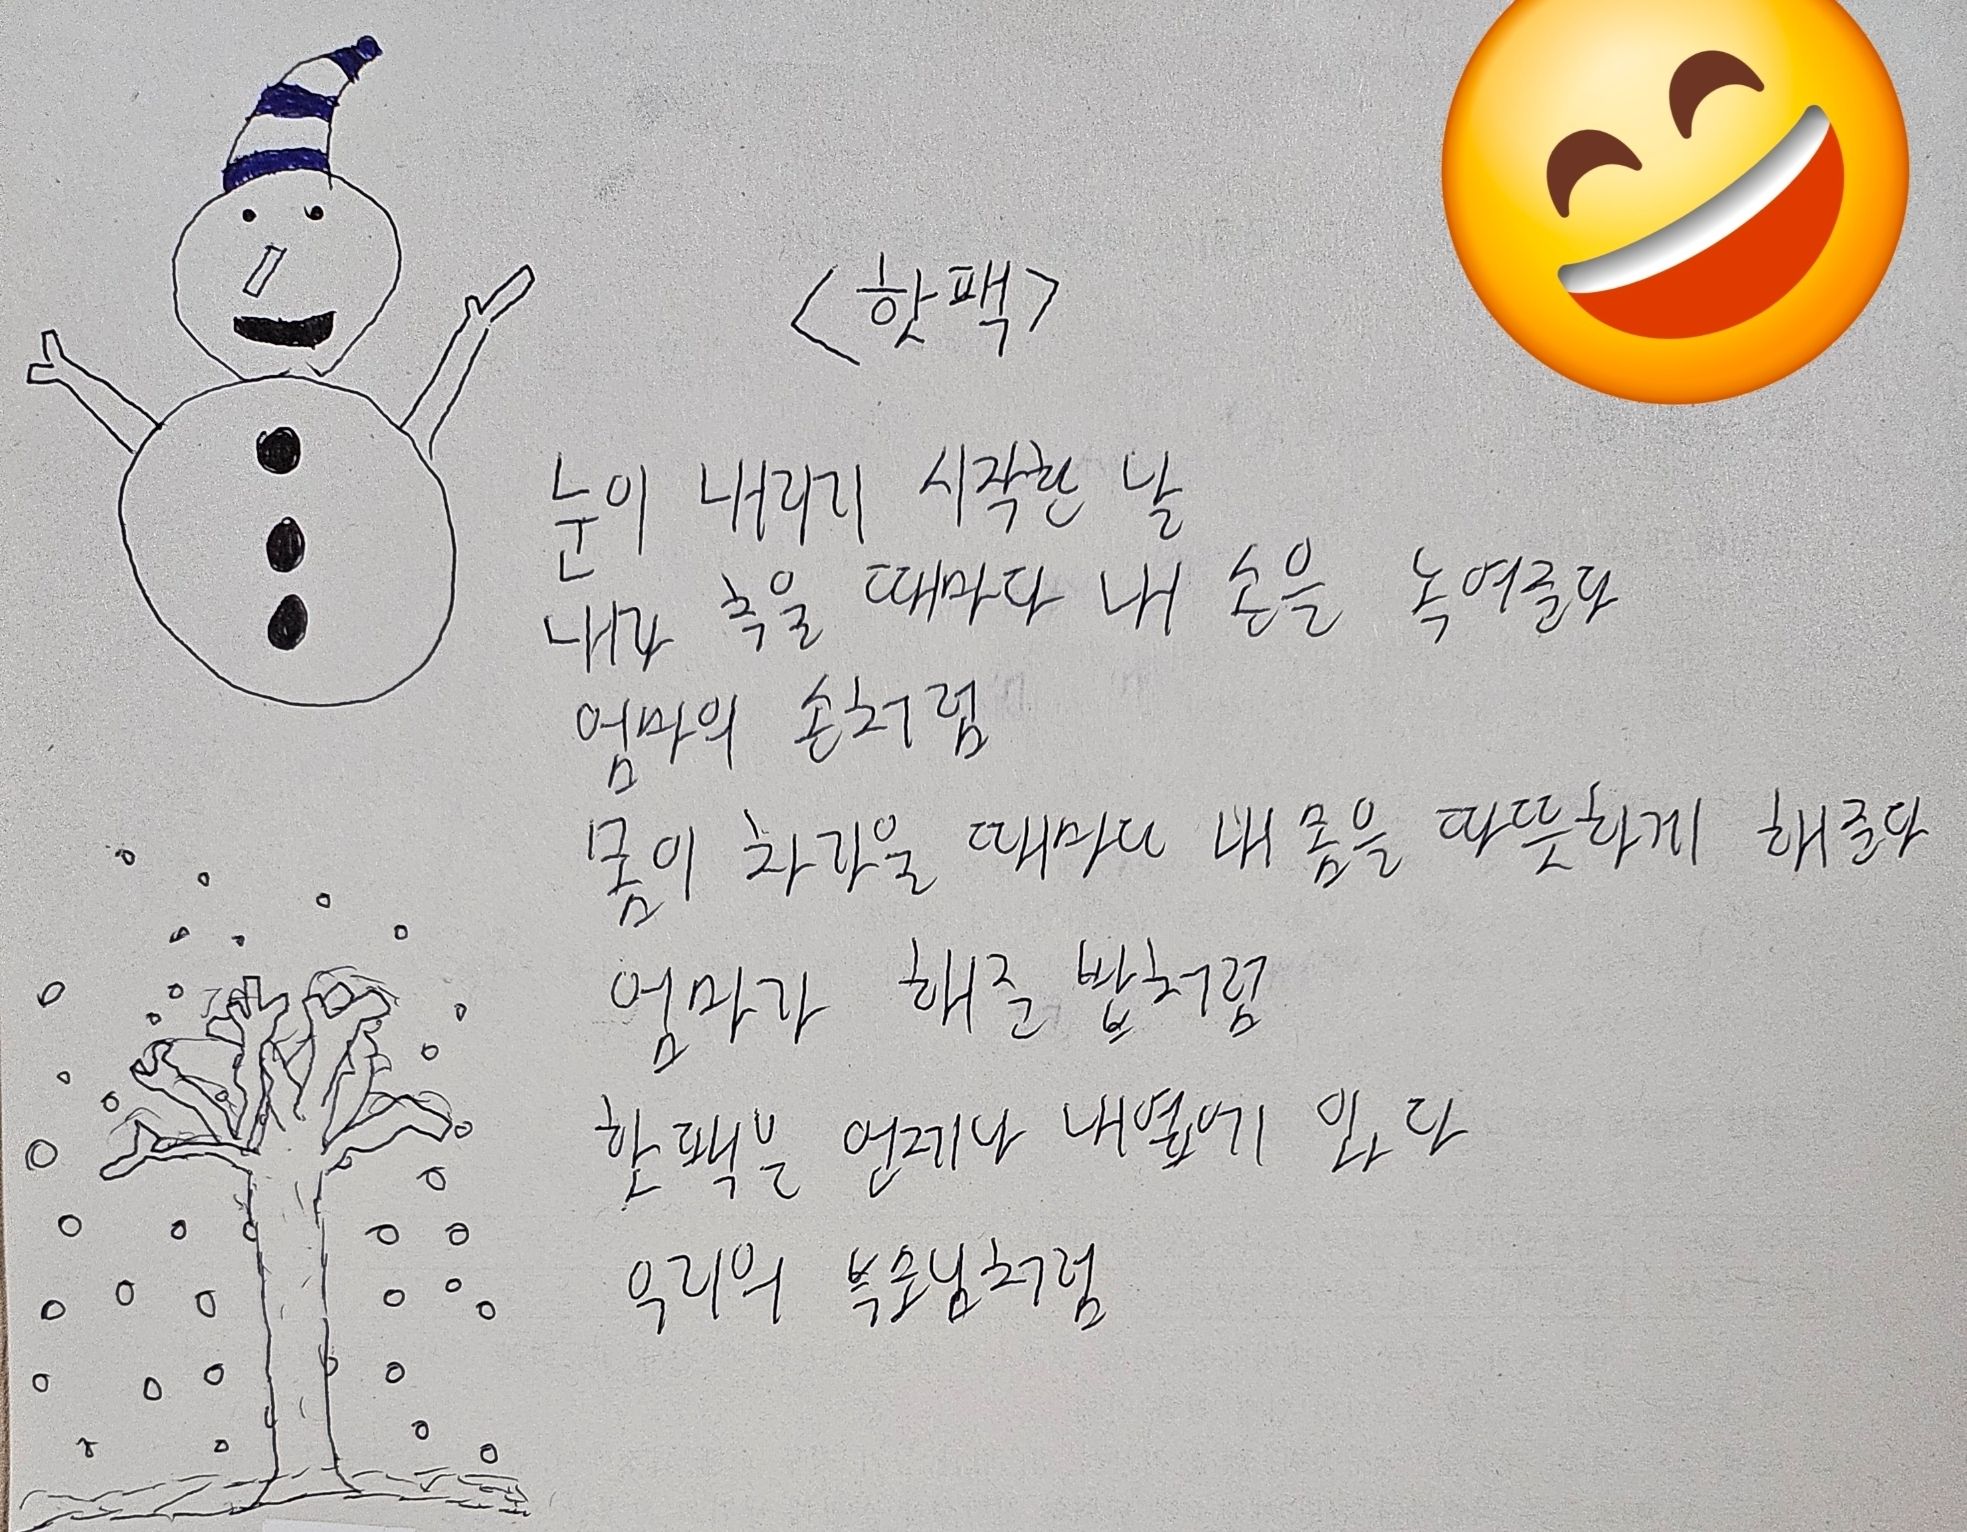 <핫팩>
눈이 내리기 시작한 날
내가 추울 때마다 내 손을 녹여준다
엄마의 손처럼
몸이 차가울 때마다 내 몸을 따뜻하게 해준다
엄마가 해준 밥처럼
핫팩은 언제나 내옆에 있다
우리의 부모님처럼